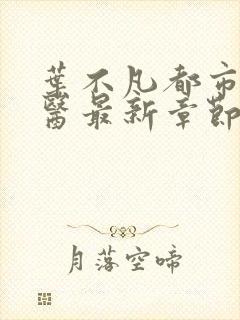 葉不凡都市
醫最新章節
月落空啼